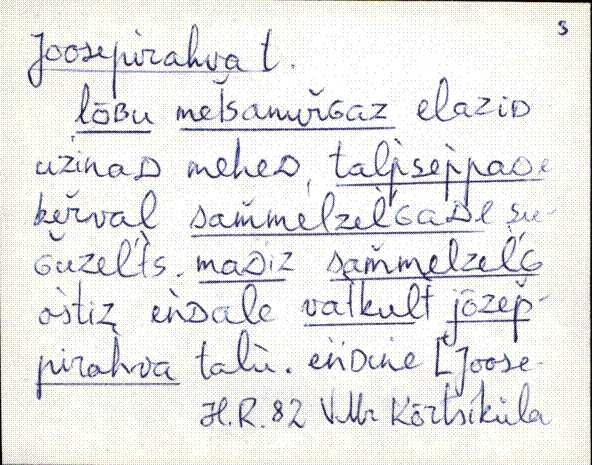 5
Joosepirahva t.
lōʙu metsanuŕɢaz elaziᴅ
uzinaᴅ meheᴅ, talpseppaᴅe
keŕval sam̌melzelɢaᴅe su-
ɢuzelts. maᴅiz sam̌melzelɢ
ostiz enᴅale vatkult jōzep-
pirahva talu. enᴅine [Joose-
H.R. 82 VMr Kōrtsiküla